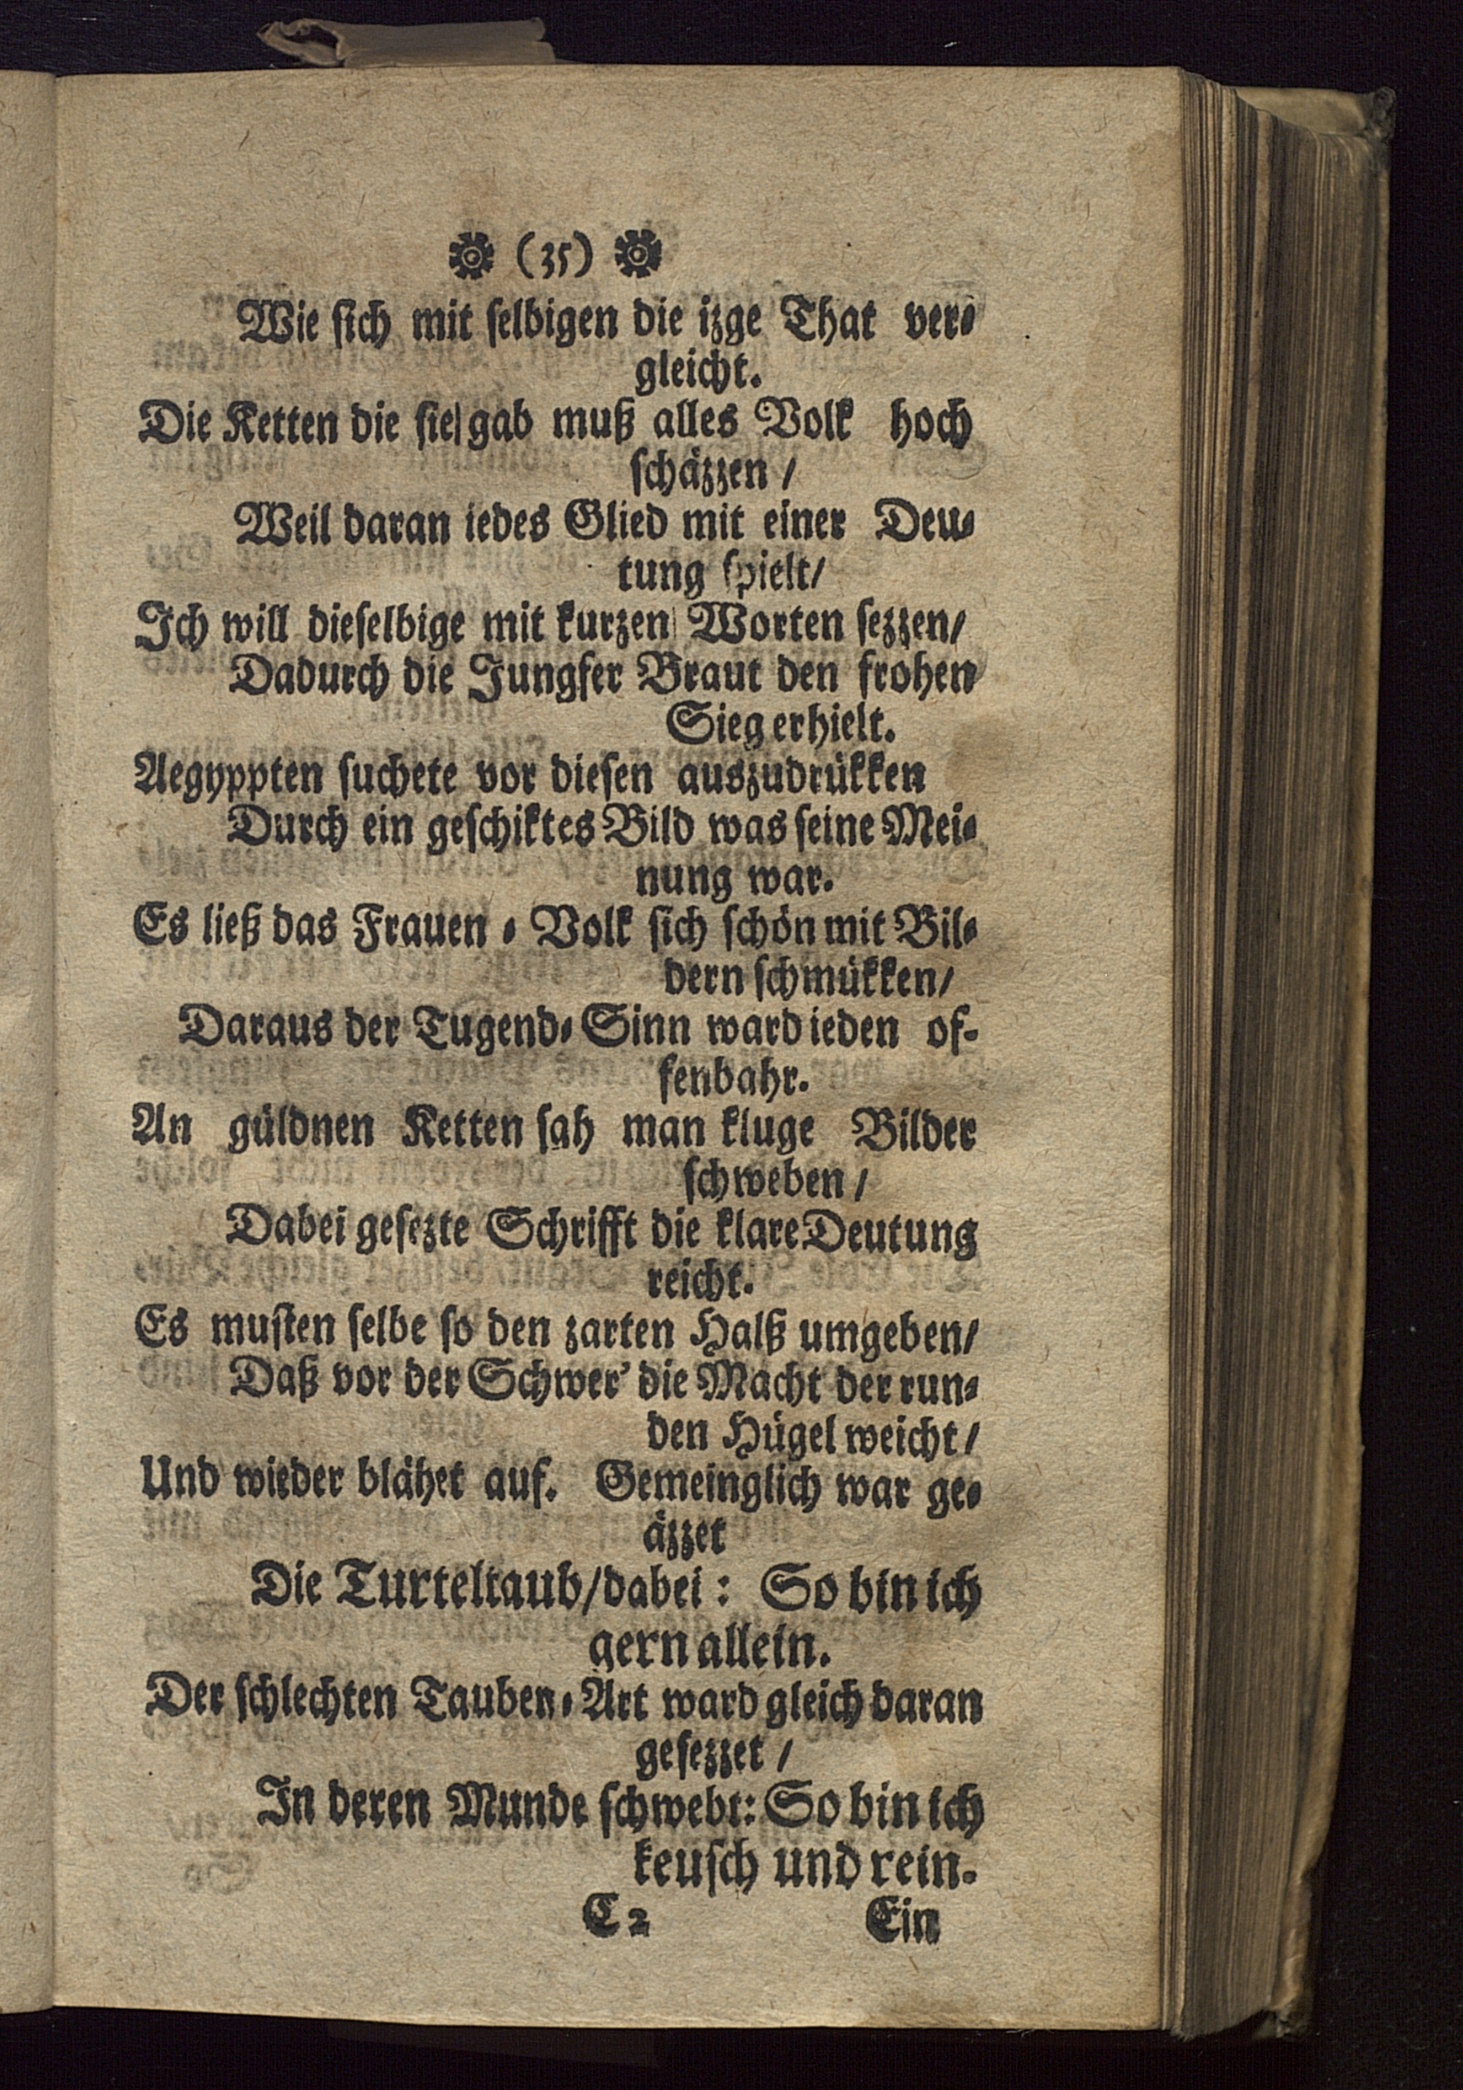 (35)
Wie ſich mit ſelbigen die izge That ver⸗
gleicht.
Die Ketten die ſie gab muß alles Volk hoch
ſchäzzen /
Weil daran iedes Glied mit einer Deu⸗
tung ſpielt/
Ich will dieſelbige mit kurzen Worten ſezzen/
Dadurch die Jungfer Braut den frohen
Sieg erhielt.
Aegyppten ſuchete vor dieſen auszudrükken
Durch ein geſchiktes Bild was ſeine Mei⸗
nung war.
Es ließ das Frauen ⸗ Volk ſich ſchön mit Bil⸗
dern ſchmükken/
Daraus der Tugend⸗ Sinn ward ieden of-
fenbahr.
An güldnen Ketten ſah man kluge Bilder
ſchweben /
Dabei geſezte Schrifft die klare Deutung
reicht.
Es muſten ſelbe ſo den zarten Halß umgeben/
Daß vor der Schwer’ die Macht der run⸗
den Hügel weicht /
Und wieder blähet auf. Gemeinglich war ge⸗
äzzet
Die Turteltaub/dabei : So bin ich
gern allein.
Der ſchlechten Tauben⸗Art ward gleich daran
geſezzet /
In deren Munde ſchwebt: So bin ich
keuſch und rein.
C 2 Ein